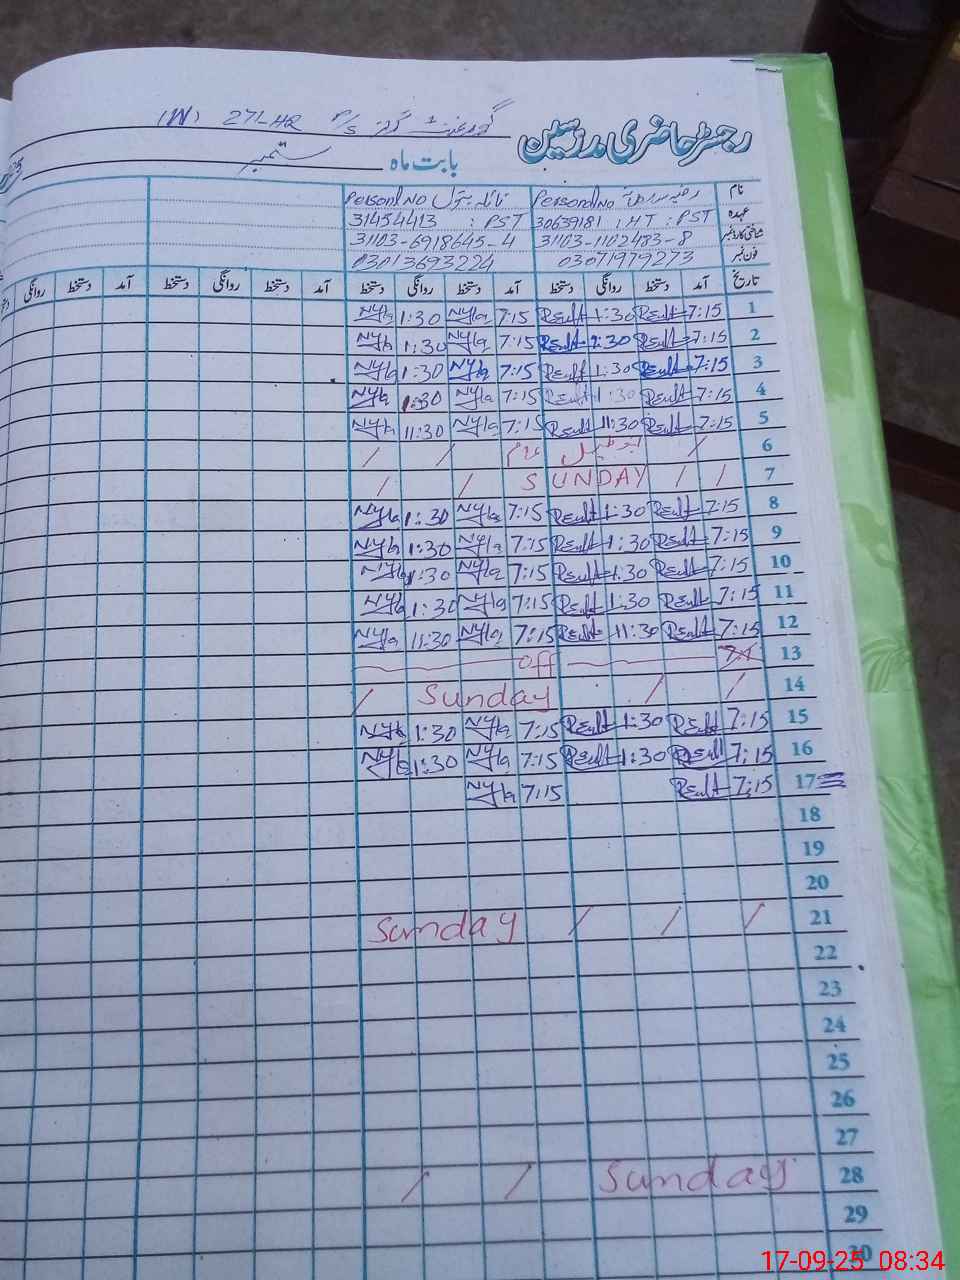 رجسٹر حاضری مدرسین
گورنمنٹ گرلز P/S 27L HR (W)
بابت ماہ ستمبر
نام Personl No نائلہ بتول Personl No
عہدہ 30639181 : HT : PST 31454413 : PST
شناختی کارڈ نمبر 31103-1102483-8 31103-6918645-4
فون نمبر 03071979273 03013693224
تاریخ آمد دستخط روانگی دستخط آمد دستخط روانگی دستخط آمد دستخط روانگی دستخط آمد دستخط روانگی
1 7:15 1:30 7:15 Nyla 1:30 Nyla
2 7:15 1:30 7:15 Nyla 1:30 Nyla
3 7:15 1:30 7:15 Nyla 1:30 Nyla
4 7:15 1:30 7:15 Nyla 1:30 Nyla
5 7:15 11:30 7:15 Nyla 11:30 Nyla
6 / / /
7 / / SUNDAY / /
8 7:15 1:30 7:15 Nyla 1:30 Nyla
9 7:15 1:30 7:15 Nyla 1:30 Nyla
10 7:15 1:30 7:15 Nyla 1:30 Nyla
11 7:15 1:30 7:15 Nyla 1:30 Nyla
12 7:15 11:30 7:15 Nyla 11:30 Nyla
13 off
14 / / Sunday /
15 7:15 1:30 7:15 Nyla 1:30 Nyla
16 7:15 1:30 7:15 Nyla 1:30 Nyla
17 7:15 7:15 Nyla
18
19
20
21 / / / Sunday
22
23
24
25
26
27
28 Sunday / /
29
30
17-09-25 08:34